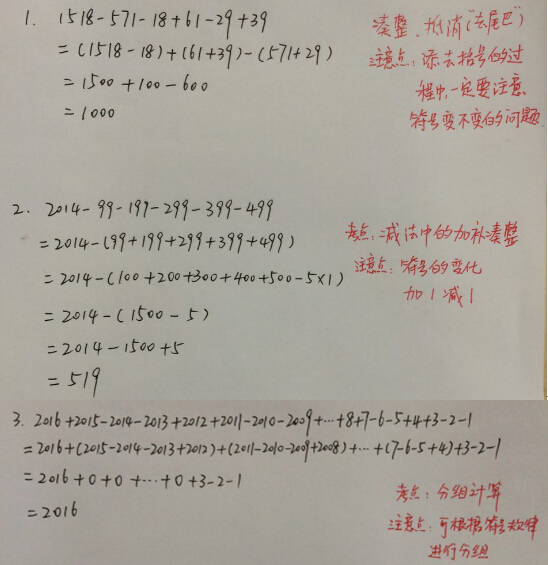 1. 1518-571-18+61-29+39
=(1518-18)+(61+39)-(571+29)
=1500+100-600
=1000
凑整、抵消("去尾巴")
注意点:添去括号的过
程中,一定要注意
符号变不变的问题
2. 2014-99-199-299-399-499
=2014-(99+199+299+399+499)
=2014-(100+200+300+400+500-5×1)
=2014-(1500-5)
=2014-1500+5
=519
考点:减法中的加补凑整
注意点:符号的变化
加1减1
3. 2016+2015-2014-2013+2012+2011-2010-2009+…+8+7-6-5+4+3-2-1
=2016+(2015-2014-2013+2012)+(2011-2010-2009+2008)+…+(7-6-5+4)+3-2-1
=2016+0+0+…+0+3-2-1
=2016
考点:分组计算
注意点:可根据符号规律
进行分组